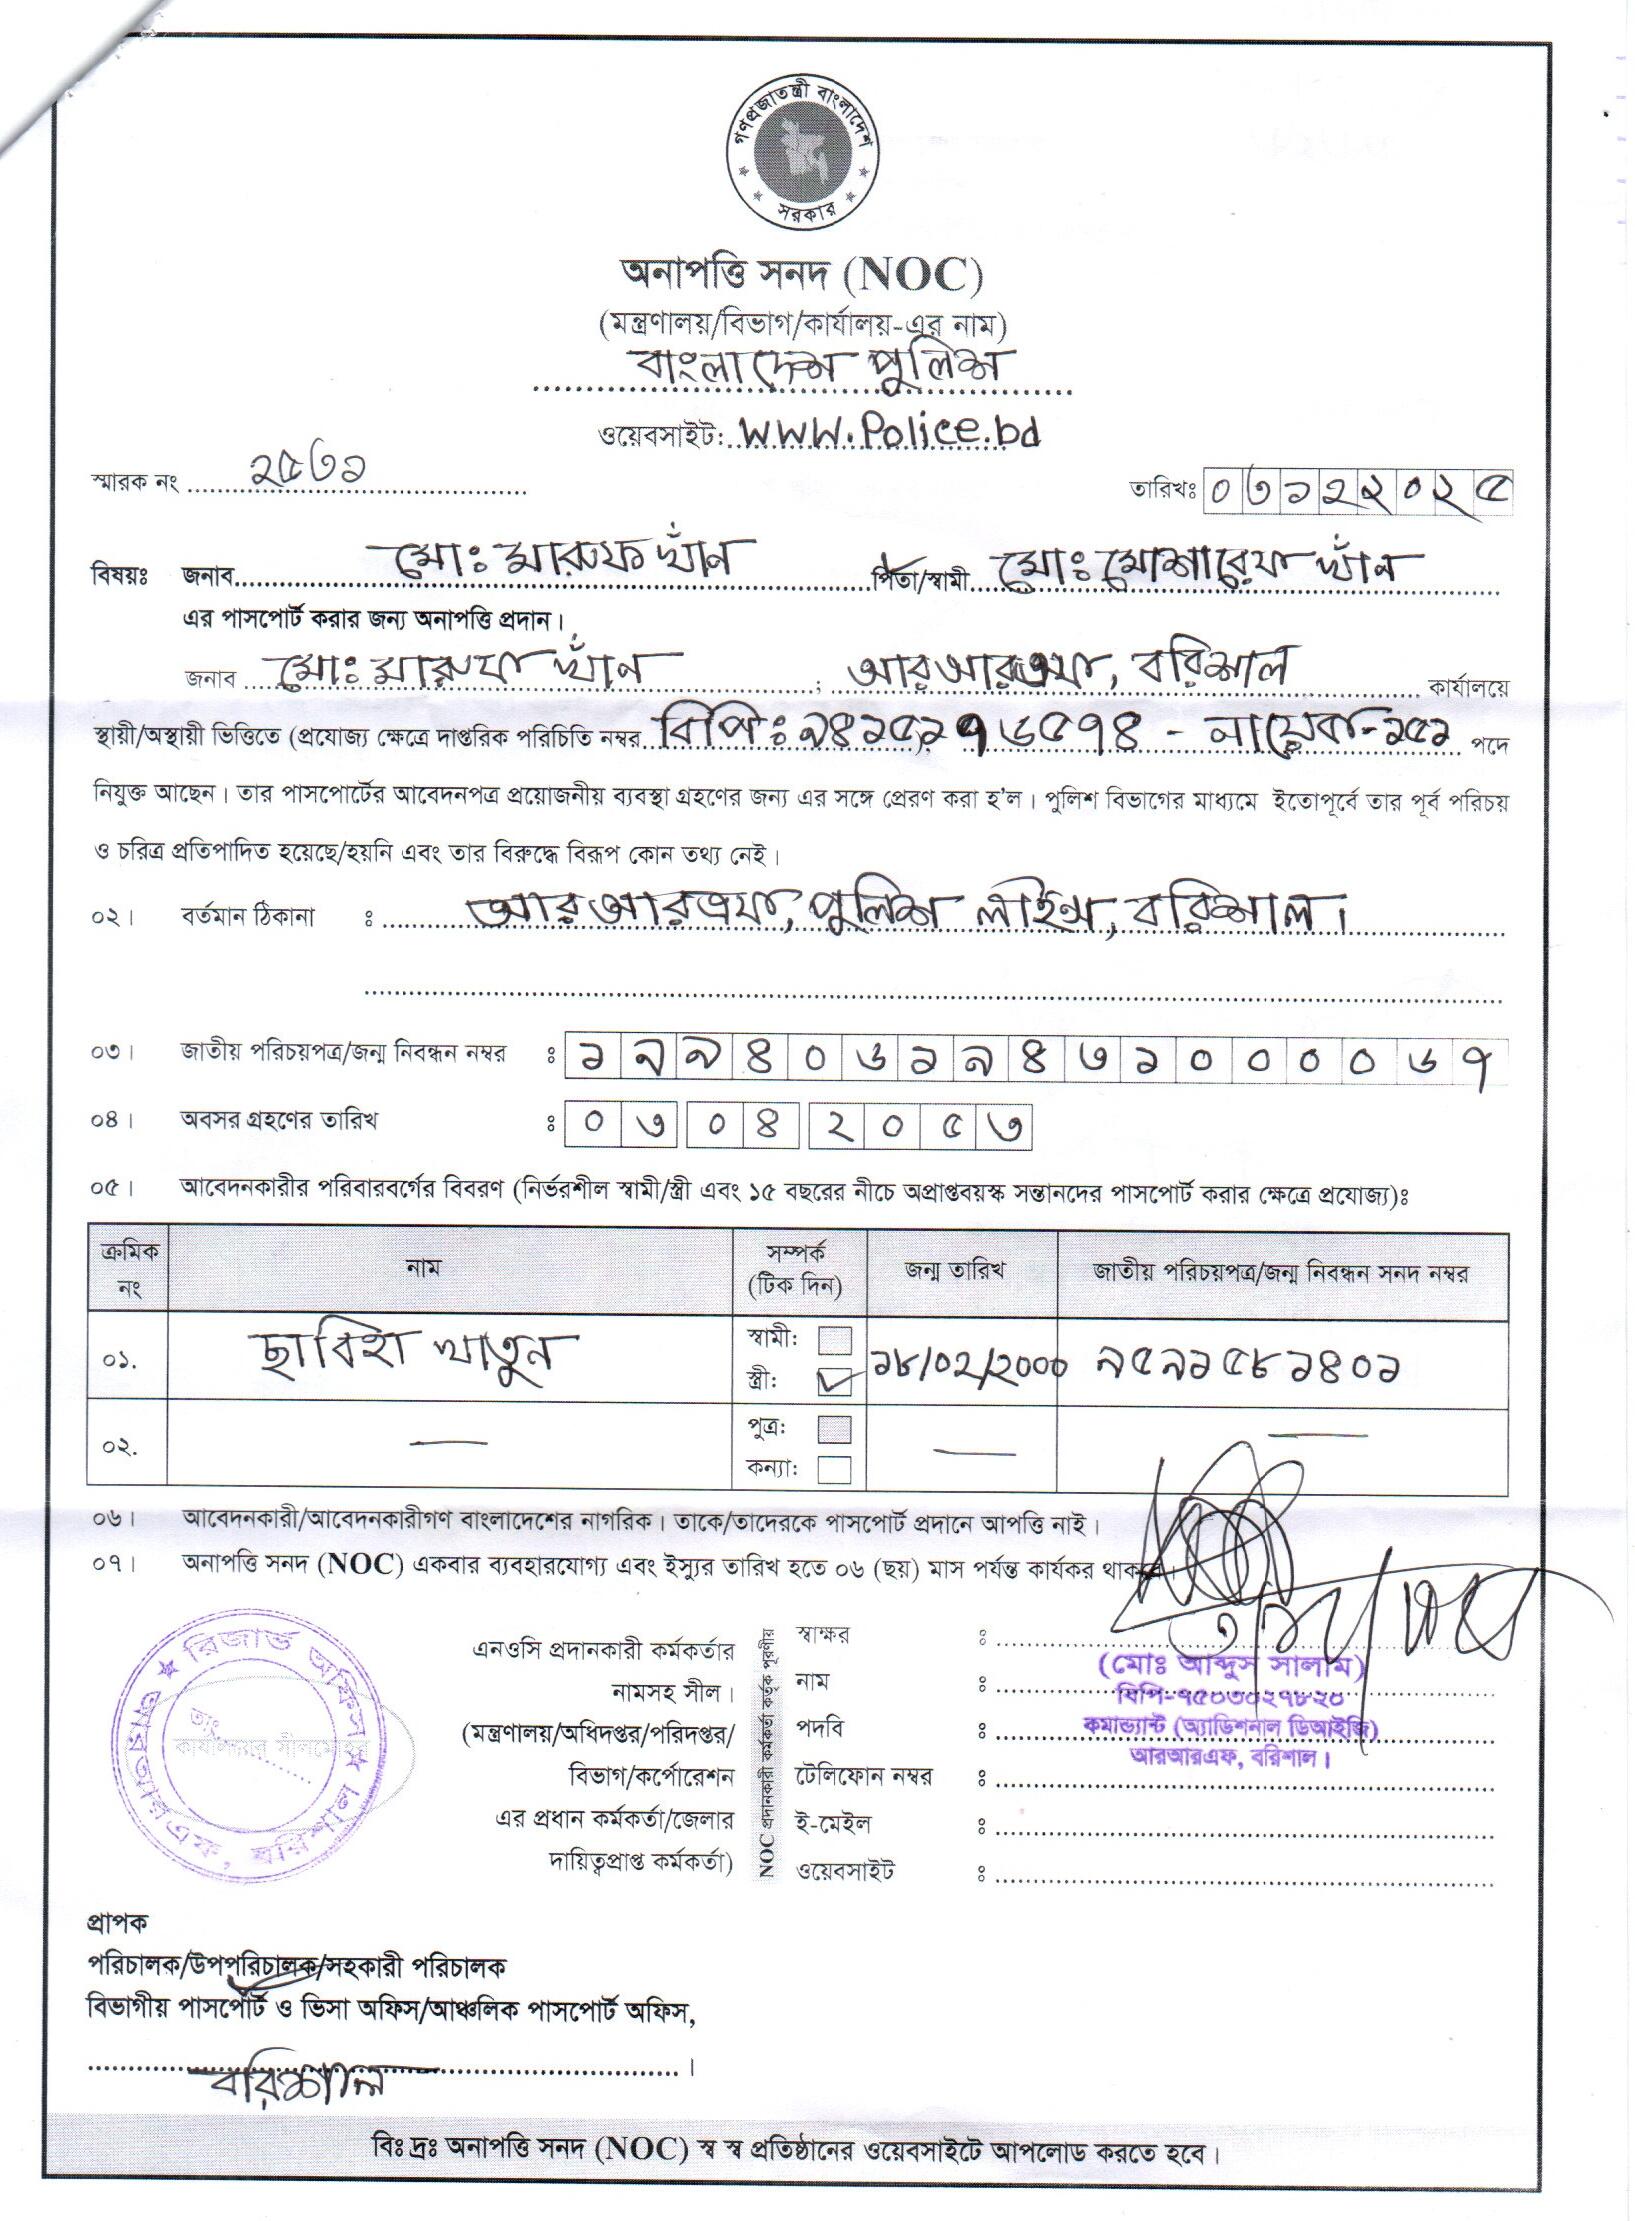 গণপ্রজাতন্ত্রী বাংলাদেশ
সরকার
অনাপত্তি সনদ (NOC)
(মন্ত্রণালয়/বিভাগ/কার্যালয়-এর নাম)
বাংলাদেশ পুলিশ
ওয়েবসাইট: www.Police.bd
স্মারক নং ২৫৩১
তারিখঃ ০৩১২২০২৫
বিষয়ঃ জনাব মোঃ মারুফ খাঁন পিতা/স্বামী মোঃ মোশারেফ খাঁন
এর পাসপোর্ট করার জন্য অনাপত্তি প্রদান।
জনাব মোঃ মারুফ খাঁন ; আরআরএফ, বরিশাল কার্যালয়ে
স্থায়ী/অস্থায়ী ভিত্তিতে (প্রযোজ্য ক্ষেত্রে দাপ্তরিক পরিচিতি নম্বর বিপিঃ ৯৪১৫১৭৬৫৭৪ - নায়েক-১৫১ পদে
নিযুক্ত আছেন। তার পাসপোর্টের আবেদনপত্র প্রয়োজনীয় ব্যবস্থা গ্রহণের জন্য এর সঙ্গে প্রেরণ করা হ'ল। পুলিশ বিভাগের মাধ্যমে ইতোপূর্বে তার পূর্ব পরিচয়
ও চরিত্র প্রতিপাদিত হয়েছে/হয়নি এবং তার বিরুদ্ধে বিরূপ কোন তথ্য নেই।
০২। বর্তমান ঠিকানা ঃ আরআরএফ, পুলিশ লাইন্স, বরিশাল।
০৩। জাতীয় পরিচয়পত্র/জন্ম নিবন্ধন নম্বর ঃ ১৯৯৪০৬১৯৪৩১০০০০৬৭
০৪। অবসর গ্রহণের তারিখ ঃ ০৩ ০৪ ২০৫৩
০৫। আবেদনকারীর পরিবারবর্গের বিবরণ (নির্ভরশীল স্বামী/স্ত্রী এবং ১৫ বছরের নীচে অপ্রাপ্তবয়স্ক সন্তানদের পাসপোর্ট করার ক্ষেত্রে প্রযোজ্য)ঃ
ক্রমিক নং নাম সম্পর্ক (টিক দিন) জন্ম তারিখ জাতীয় পরিচয়পত্র/জন্ম নিবন্ধন সনদ নম্বর
০১. ছাবিহা খাতুন স্বামী: স্ত্রী: ১৮/০২/২০০০ ৯৫৯১৫৮১৪০১
০২. — পুত্র: কন্যা: — —
০৬। আবেদনকারী/আবেদনকারীগণ বাংলাদেশের নাগরিক। তাকে/তাদেরকে পাসপোর্ট প্রদানে আপত্তি নাই।
০৭। অনাপত্তি সনদ (NOC) একবার ব্যবহারযোগ্য এবং ইস্যুর তারিখ হতে ০৬ (ছয়) মাস পর্যন্ত কার্যকর থাকবে।
রিজার্ভ অফিসার
আরআরএফ, বরিশাল
তাং
কার্যালয়ের সীলমোহর
এনওসি প্রদানকারী কর্মকর্তার
নামসহ সীল।
(মন্ত্রণালয়/অধিদপ্তর/পরিদপ্তর/
বিভাগ/কর্পোরেশন
এর প্রধান কর্মকর্তা/জেলার
দায়িত্বপ্রাপ্ত কর্মকর্তা)
NOC প্রদানকারী কর্মকর্তা কর্তৃক পূরণীয়
স্বাক্ষর ঃ
নাম ঃ
পদবি ঃ
টেলিফোন নম্বর ঃ
ই-মেইল ঃ
ওয়েবসাইট ঃ
(মোঃ আব্দুস সালাম)
বিপি-৭৫০৩০২৭৮২০
কমান্ড্যান্ট (অ্যাডিশনাল ডিআইজি)
আরআরএফ, বরিশাল।
প্রাপক
পরিচালক/উপপরিচালক/সহকারী পরিচালক
বিভাগীয় পাসপোর্ট ও ভিসা অফিস/আঞ্চলিক পাসপোর্ট অফিস,
বরিশাল।
বিঃ দ্রঃ অনাপত্তি সনদ (NOC) স্ব স্ব প্রতিষ্ঠানের ওয়েবসাইটে আপলোড করতে হবে।